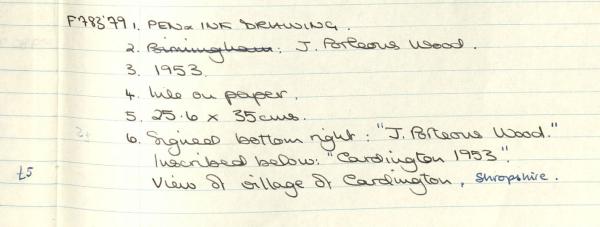 P783'79 1. PEN & INK DRAWING.
2. ~~Birmingham~~: J. Porteous Wood.
3. 1953.
4. Ink on paper.
5. 25.6 x 35cms.
6. Signed bottom right: "J. Porteous Wood."
Inscribed below: "Cardington 1953".
£5 View of village of Cardington, Shropshire.